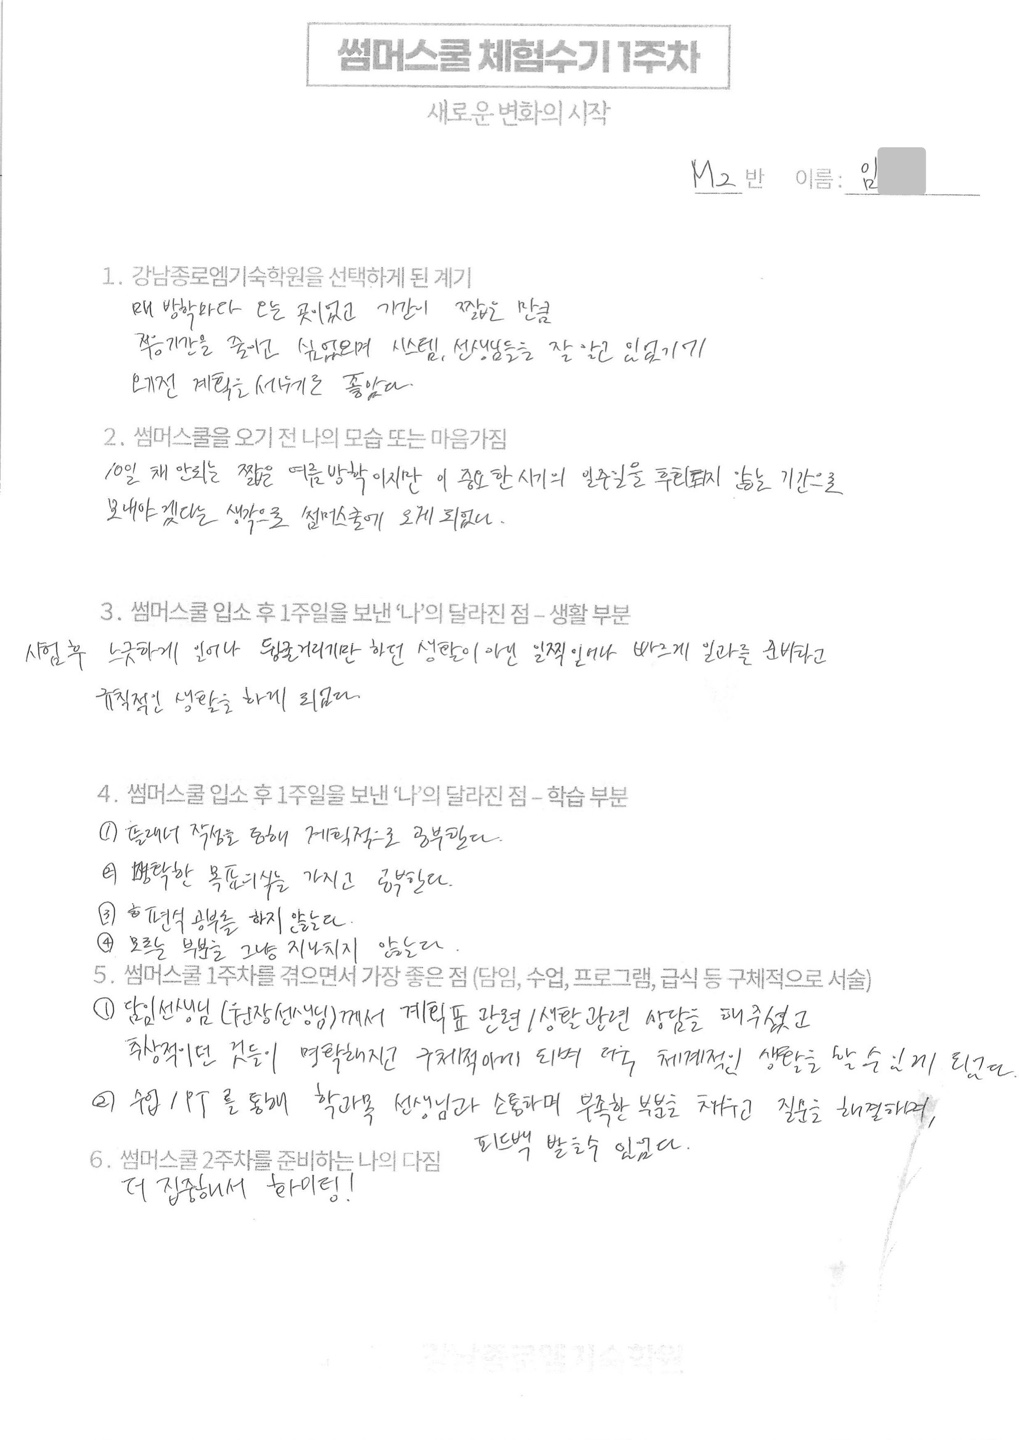 썸머스쿨 체험수기 1주차
새로운 변화의 시작
M2 반 이름 : 임
1. 강남종로엠기숙학원을 선택하게 된 계기
매 방학마다 오는 곳이었고 기간이 짧은 만큼
적응기간을 줄이고 싶었으며 시스템, 선생님들을 잘 알고 있었기에
오기전 계획을 세우기도 좋았다.
2. 썸머스쿨을 오기 전 나의 모습 또는 마음가짐
10일 채 안되는 짧은 여름방학이지만 이 중요한 시기의 일주일을 후회되지 않는 기간으로
보내야겠다는 생각으로 썸머스쿨에 오게 되었다.
3. 썸머스쿨 입소 후 1주일을 보낸 ‘나’의 달라진 점 – 생활 부분
시험 후 느긋하게 일어나 뒹굴거리기만 하던 생활이 아닌 일찍 일어나 빠르게 일과를 준비하고
규칙적인 생활을 하게 되었다.
4. 썸머스쿨 입소 후 1주일을 보낸 ‘나’의 달라진 점 – 학습 부분
① 플래너 작성을 통해 계획적으로 공부한다.
② 명확한 목표의식을 가지고 공부한다.
③ 편식 공부를 하지 않는다.
④ 모르는 부분을 그냥 지나치지 않는다.
5. 썸머스쿨 1주차를 겪으면서 가장 좋은 점 (담임, 수업, 프로그램, 급식 등 구체적으로 서술)
① 담임선생님 (원장선생님)께서 계획표 관련 / 생활 관련 상담을 해주셨고
추상적이던 것들이 명확해지고 구체적이게 되며 더욱 체계적인 생활을 할 수 있게 되었다.
② 수업 / PT 를 통해 학과목 선생님과 소통하며 부족한 부분을 채우고 질문을 해결하며,
피드백 받을수 있었다.
6. 썸머스쿨 2주차를 준비하는 나의 다짐
더 집중해서 화이팅!